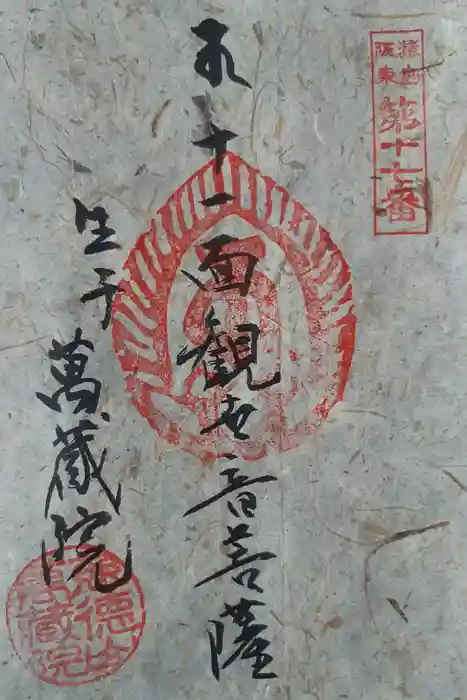 猿島
阪東
第十七番
十一面觀世音菩薩
生子
萬蔵院
德山
萬藏院